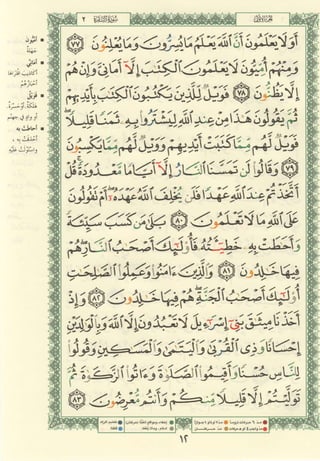 الجزء الأول
سورة البقرة
٢
أَوَلَا يَعْلَمُونَ أَنَّ ٱللَّهَ يَعْلَمُ مَا يُسِرُّونَ وَمَا يُعْلِنُونَ ٧٧
وَمِنْهُمْ أُمِّيُّونَ لَا يَعْلَمُونَ ٱلْكِتَٰبَ إِلَّآ أَمَانِىَّ وَإِنْ هُمْ
إِلَّا يَظُنُّونَ ٧٨ فَوَيْلٌ لِّلَّذِينَ يَكْتُبُونَ ٱلْكِتَٰبَ بِأَيْدِيهِمْ
ثُمَّ يَقُولُونَ هَٰذَا مِنْ عِندِ ٱللَّهِ لِيَشْتَرُوا۟ بِهِۦ ثَمَنًا قَلِيلًا
فَوَيْلٌ لَّهُم مِّمَّا كَتَبَتْ أَيْدِيهِمْ وَوَيْلٌ لَّهُم مِّمَّا يَكْسِبُونَ
٧٩ وَقَالُوا۟ لَن تَمَسَّنَا ٱلنَّارُ إِلَّآ أَيَّامًا مَّعْدُودَةً قُلْ
أَتَّخَذْتُمْ عِندَ ٱللَّهِ عَهْدًا فَلَن يُخْلِفَ ٱللَّهُ عَهْدَهُۥٓ أَمْ نَقُولُونَ
عَلَى ٱللَّهِ مَا لَا تَعْلَمُونَ ٨٠ بَلَىٰ مَن كَسَبَ سَيِّئَةً
وَأَحَٰطَتْ بِهِۦ خَطِيٓـَٔتُهُۥ فَأُو۟لَٰٓئِكَ أَصْحَٰبُ ٱلنَّارِ هُمْ
فِيهَا خَٰلِدُونَ ٨١ وَٱلَّذِينَ ءَامَنُوا۟ وَعَمِلُوا۟ ٱلصَّٰلِحَٰتِ
أُو۟لَٰٓئِكَ أَصْحَٰبُ ٱلْجَنَّةِ هُمْ فِيهَا خَٰلِدُونَ ٨٢ وَإِذْ
أَخَذْنَا مِيثَٰقَ بَنِىٓ إِسْرَٰٓءِيلَ لَا تَعْبُدُونَ إِلَّا ٱللَّهَ وَبِٱلْوَٰلِدَيْنِ
إِحْسَانًا وَذِى ٱلْقُرْبَىٰ وَٱلْيَتَٰمَىٰ وَٱلْمَسَٰكِينِ وَقُولُوا۟
لِلنَّاسِ حُسْنًا وَأَقِيمُوا۟ ٱلصَّلَوٰةَ وَءَاتُوا۟ ٱلزَّكَوٰةَ ثُمَّ
تَوَلَّيْتُمْ إِلَّا قَلِيلًا مِّنكُمْ وَأَنتُم مُّعْرِضُونَ ٨٣
١٢